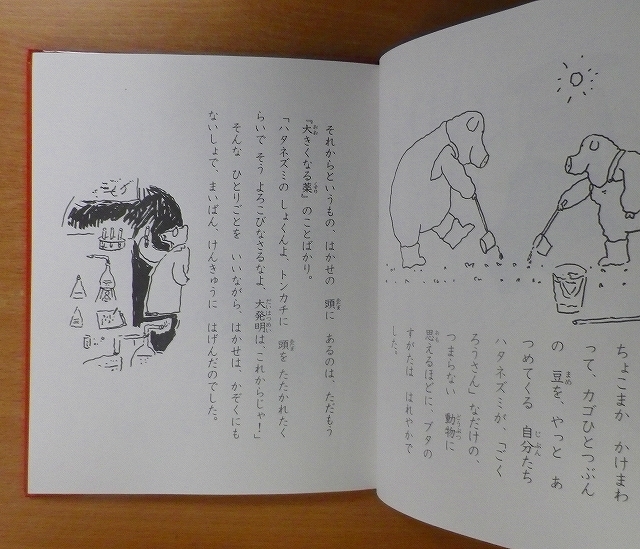 ちょこまか かけまわ
って、カゴひとつぶん
の 豆を、やっと あ
つめてくる 自分たち
ハタネズミが、「ごく
ろうさん」なだけの、
つまらない 動物に
思えるほどに、ブタの
すがたは はれやかで
した。
それからというもの、はかせの 頭に あるのは、ただもう
『大きくなる薬』のことばかり。
「ハタネズミの しょくんよ、トンカチに 頭を たたかれたく
らいで そう よろこびなさるなよ、大発明は、これからじゃ!」
そんな ひとりごとを いいながら、はかせは、かぞくにも
ないしょで、まいばん、けんきゅうに はげんだのでした。